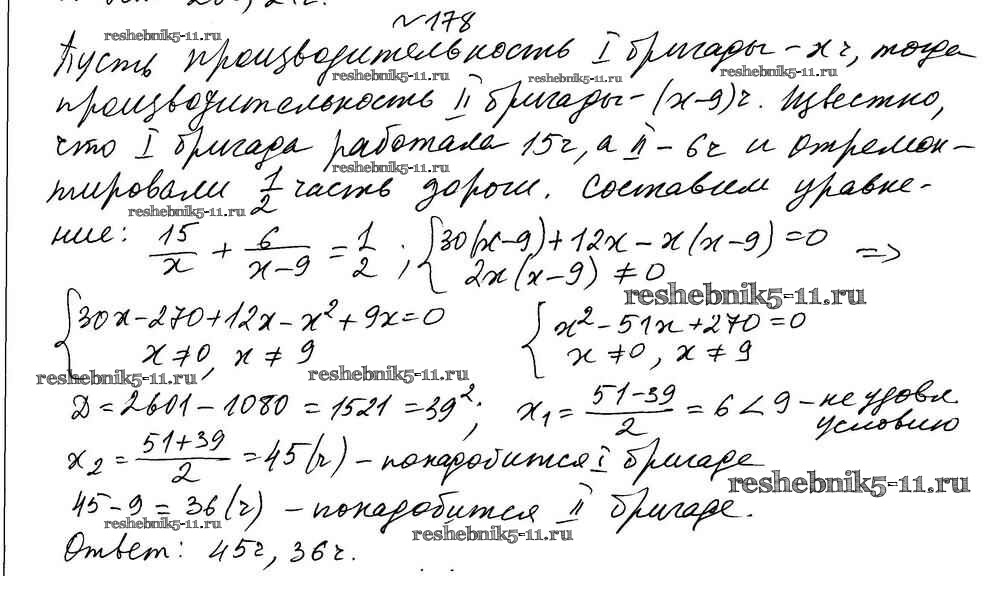 №178
Пусть производительность I бригады - x ч, тогда
производительность II бригады - (x-9)ч. Известно,
что I бригада работала 15ч, а II - 6ч и отремон-
тировали 1/2 часть дороги. Составим уравне-
ние: 15/x + 6/(x-9) = 1/2 ; { 30(x-9)+12x-x(x-9)=0 =>
2x(x-9) ≠ 0
{ 30x-270+12x-x²+9x=0 { x²-51x+270=0
x≠0, x≠9 x≠0, x≠9
Д=2601-1080=1521=39²; x₁ = (51-39)/2 = 6 < 9 - не удовл.
условию
x₂ = (51+39)/2 = 45(ч) - понадобится I бригаде
45-9=36(ч) - понадобится II бригаде.
Ответ: 45ч, 36ч.
reshebnik5-11.ru
reshebnik5-11.ru
reshebnik5-11.ru
reshebnik5-11.ru
reshebnik5-11.ru
reshebnik5-11.ru
reshebnik5-11.ru
reshebnik5-11.ru
reshebnik5-11.ru
reshebnik5-11.ru
reshebnik5-11.ru